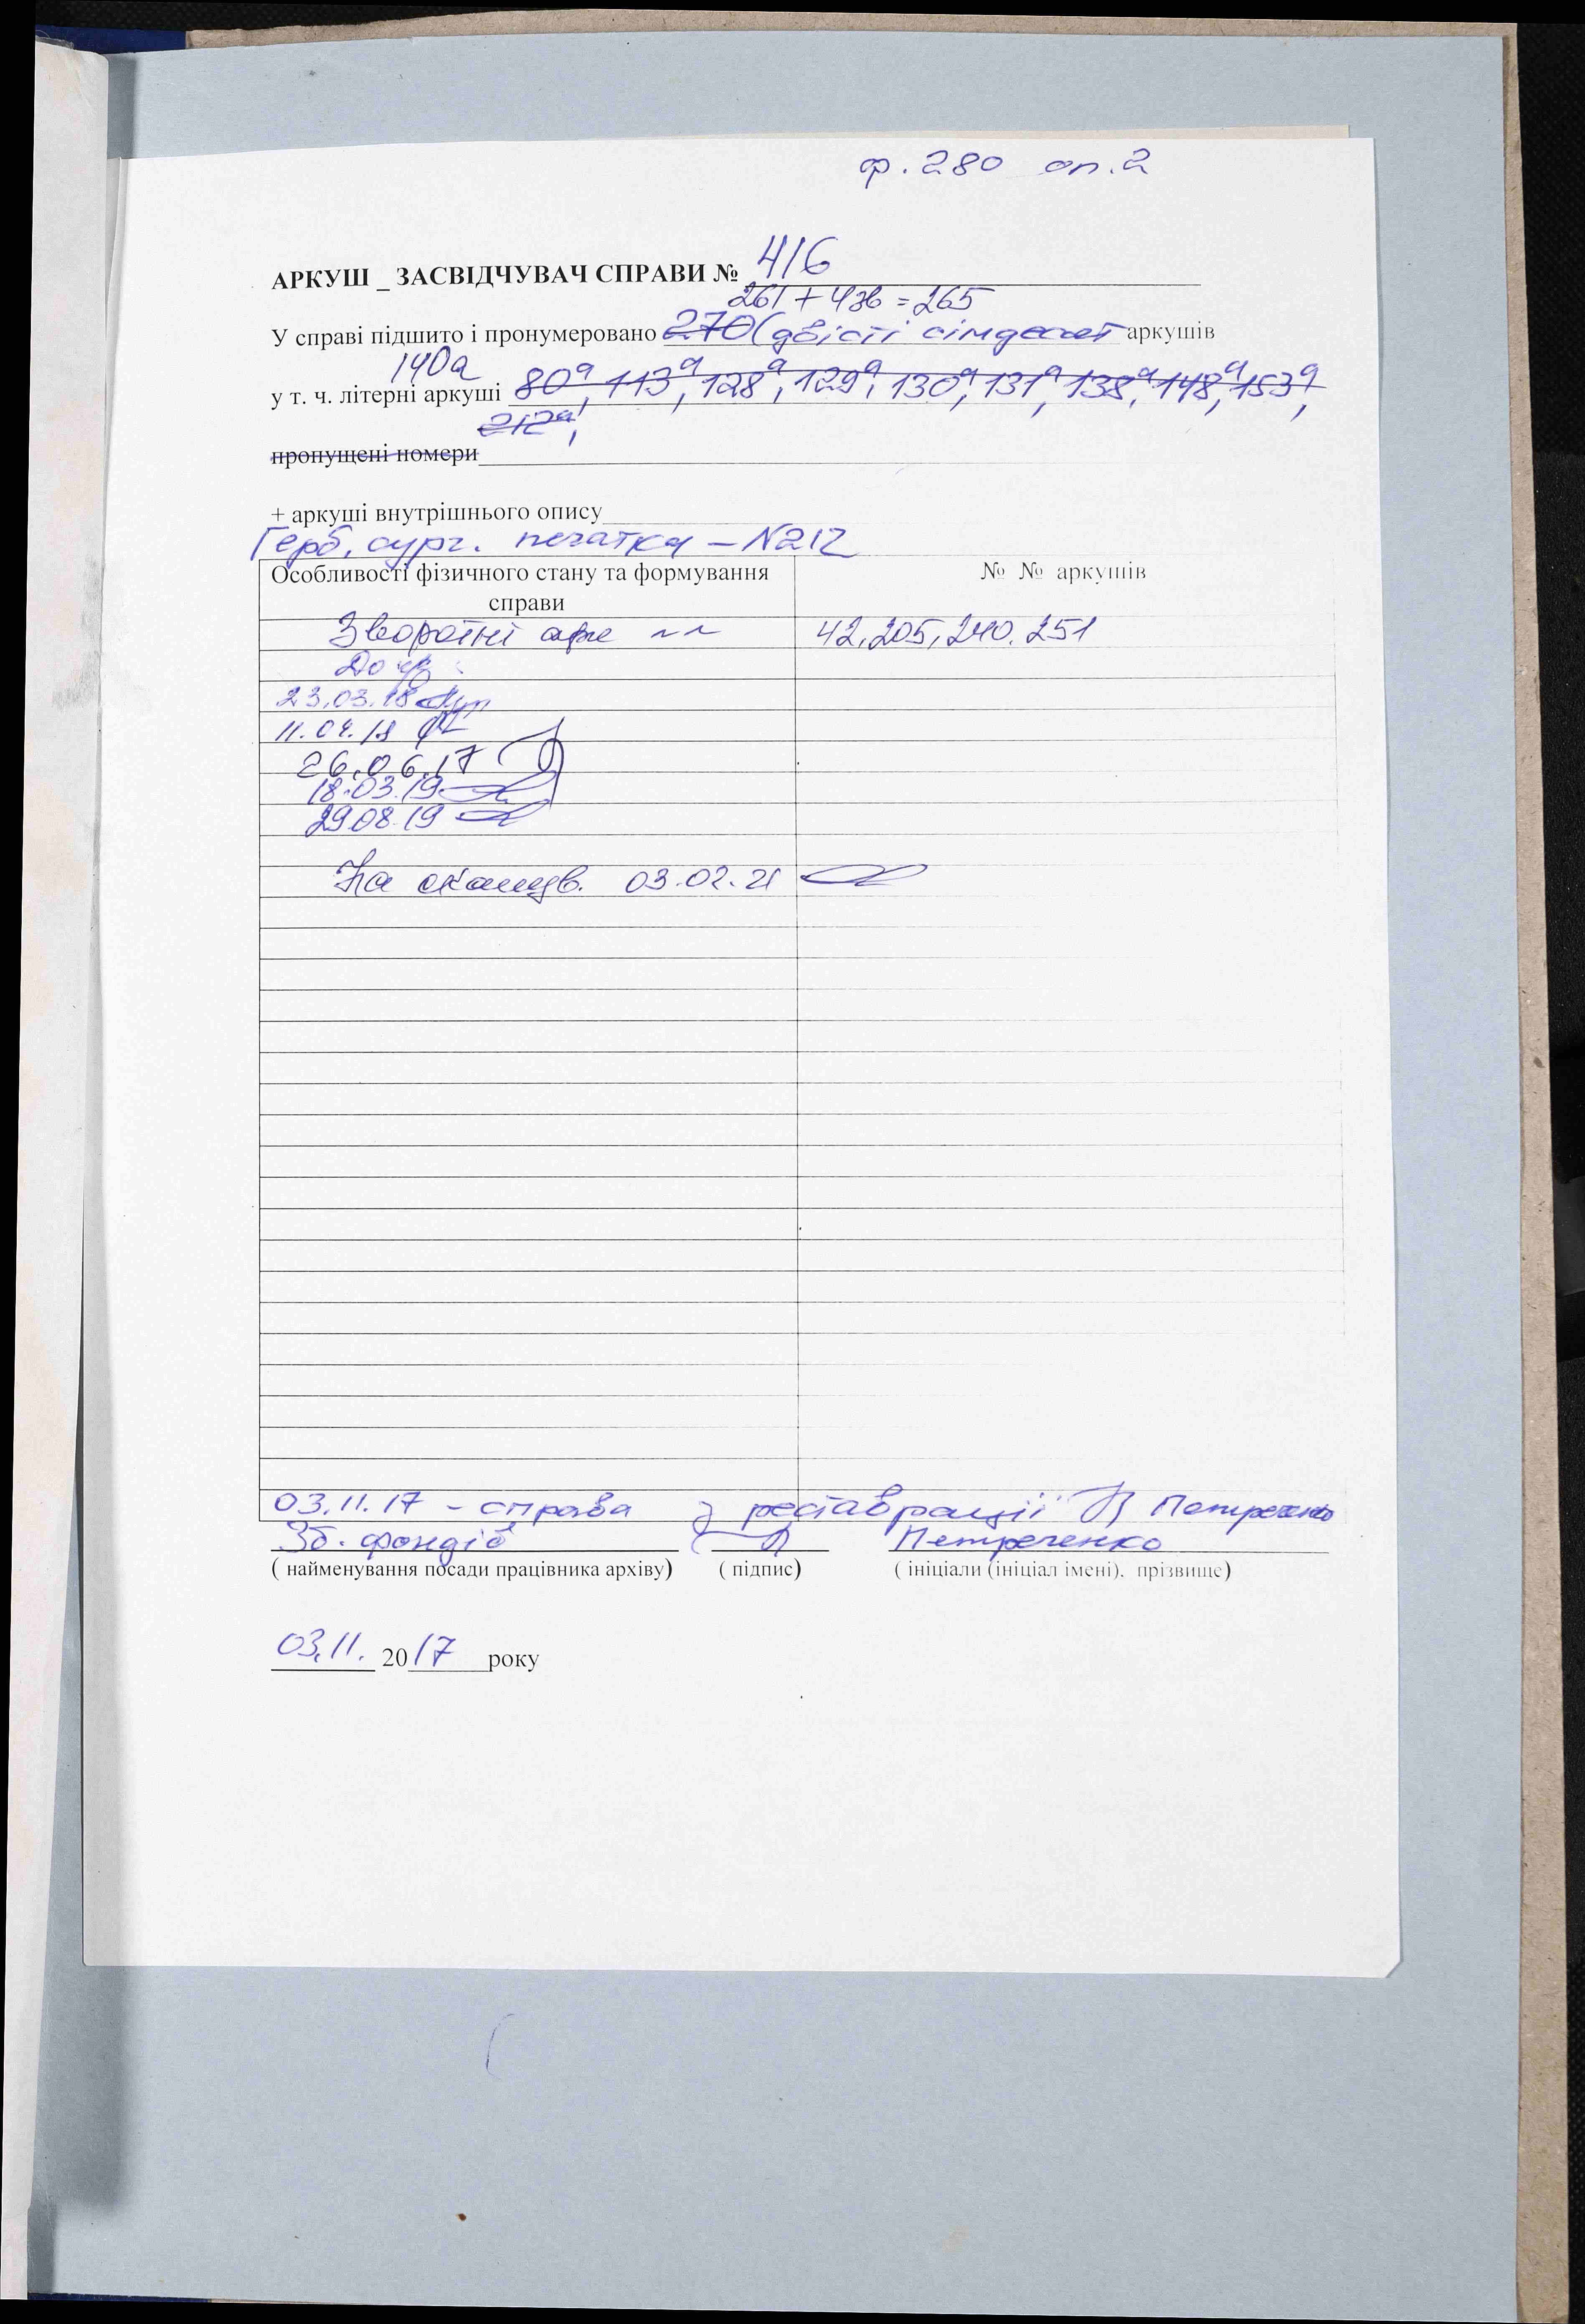 ф. 280 оп. 2
АРКУШ _ ЗАСВІДЧУВАЧ СПРАВИ № 416
261 + 4зв = 265
У справі підшито і пронумеровано 270 (двісті сімдесят аркушів
140а
у т. ч. літерні аркуші 80а, 113а, 128а, 129а, 130а, 131а, 138а, 148а, 153а,
212а,
пропущені номери
+ аркуші внутрішнього опису
Герб. сург. печатка – N212
Особливості фізичного стану та формування справи
№ № аркушів
Зворотні арк 42, 205, 240. 251
23.03.18
11.04.18
26.06.17
18.03.19
29.08.19
На сканув. 03.02.21
03.11.17 - справа з реставрації Петреченко
Зб. фондів Петреченко
( найменування посади працівника архіву) ( підпис) ( ініціали (ініціал імені), прізвище)
03.11. 2017 року